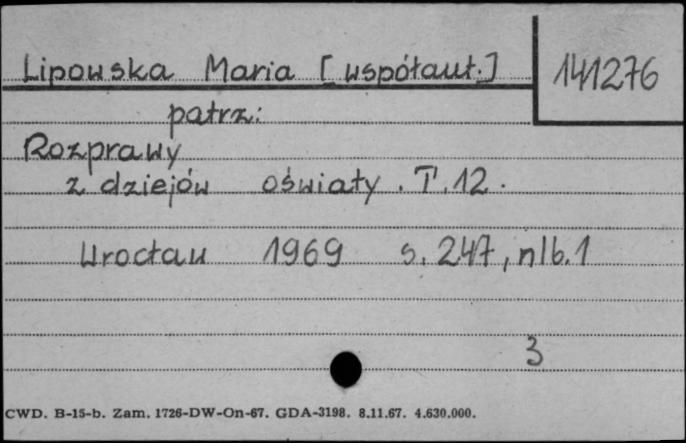 Lipowska Maria [współaut.]
141276
patrz:
Rozprawy
z dziejów oświaty. T. 12.
Wrocław 1969 s. 247, nlb. 1
3
CWD. B-15-b. Zam. 1726-DW-On-67. GDA-3198. 8.11.67. 4.630.000.